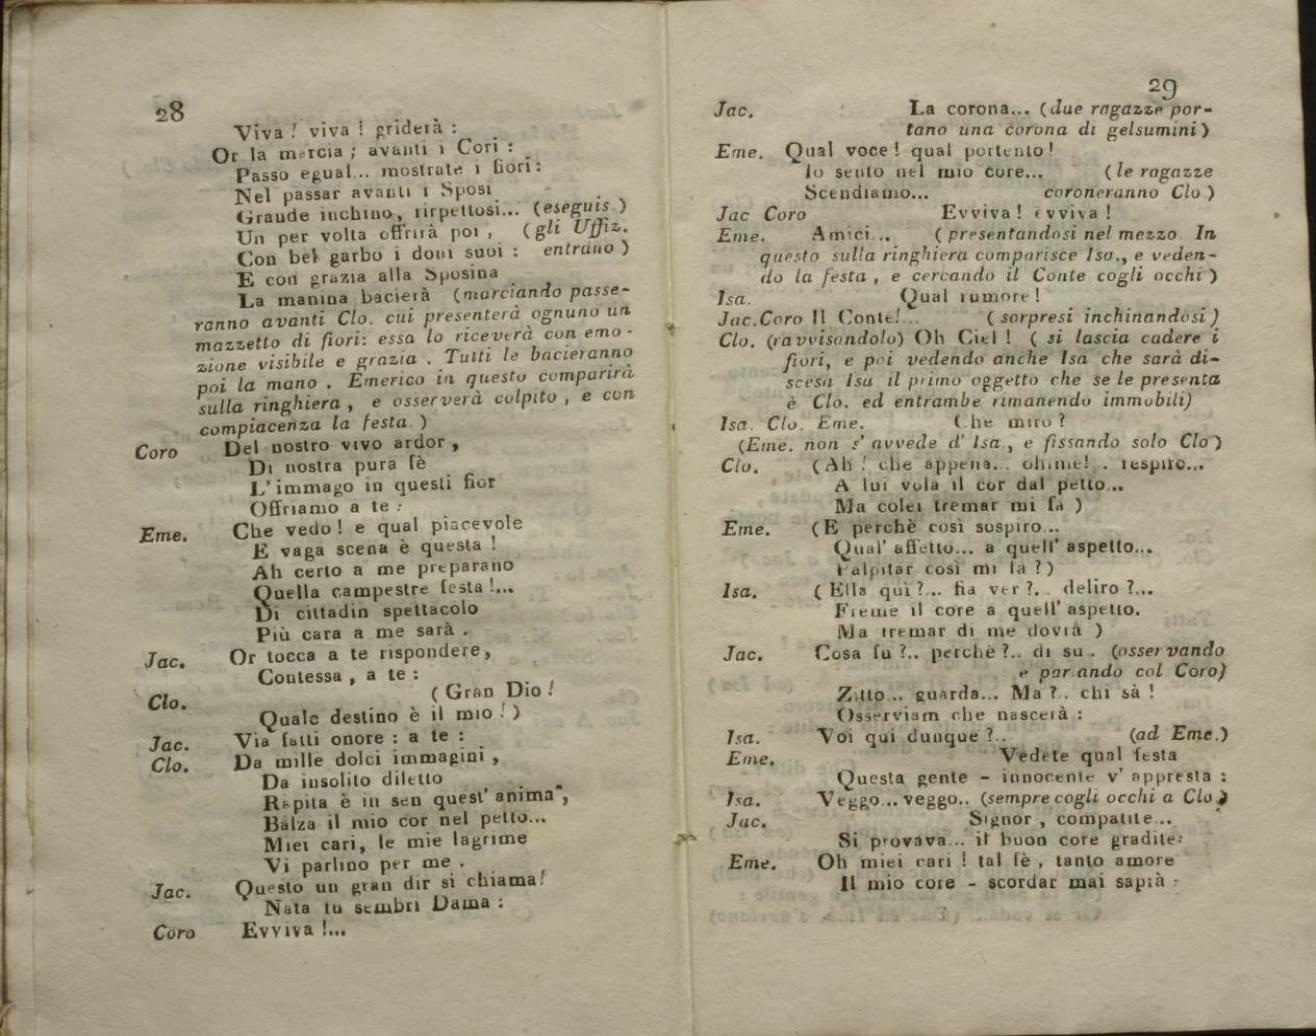 28
Viva ! viva ! griderà :
Or la marcia ; avanti i Cori :
Passo egual... mostrate i fiori :
Nel passar avanti i Sposi
Grande inchino, rirpettosi... (eseguis.)
Un per volta offrirà poi , (gli Uffiz.
Con bel garbo i doni suoi : entrano )
E con grazia alla Sposina
La manina bacierà (marciando passe-
ranno avanti Clo. cui presenterà ognuno un
mazzetto di fiori: essa lo riceverà con emo-
zione visibile e grazia . Tutti le bacieranno
poi la mano . Emerico in questo comparirà
sulla ringhiera , e osserverà colpito , e con
compiacenza la festa.)
Coro Del nostro vivo ardor ,
Di nostra pura fè
L' immago in questi fior
Offriamo a te :
Eme. Che vedo ! e qual piacevole
E vaga scena è questa !
Ah certo a me preparano
Quella campestre festa !...
Di cittadin spettacolo
Più cara a me sarà .
Jac. Or tocca a te rispondere,
Contessa , a te :
Clo. ( Gran Dio !
Quale destino è il mio ! )
Jac. Via fatti onore : a te :
Clo. Da mille dolci immagini ,
Da insolito diletto
Rapita è in sen quest' anima ,
Balza il mio cor nel petto...
Miei cari, le mie lagrime
Vi parlino per me .
Jac. Questo un gran dir si chiama!
Nata tu sembri Dama :
Coro Evviva !...
29
Jac. La corona... (due ragazze por-
tano una corona di gelsumini)
Eme. Qual voce ! qual portento !
Io sento nel mio core... (le ragazze
Scendiamo... coroneranno Clo )
Jac Coro Evviva ! evviva !
Eme. Amici... ( presentandosi nel mezzo. In
questo sulla ringhiera comparisce Isa., e veden-
do la festa , e cercando il Conte cogli occhi )
Isa. Qual rumore !
Jac. Coro Il Conte!... ( sorpresi inchinandosi )
Clo. (ravvisandolo) Oh Ciel ! ( si lascia cadere i
fiori, e poi vedendo anche Isa che sarà di-
scesa Isa il primo oggetto che se le presenta
è Clo. ed entrambe rimanendo immobili)
Isa. Clo. Eme. Che miro ?
(Eme. non s' avvede d' Isa., e fissando solo Clo )
Clo. (Ah ! che appena... ohimè! . respiro...
A lui vola il cor dal petto...
Ma colei tremar mi fa )
Eme. (E perchè così sospiro...
Qual' affetto... a quell' aspetto...
Palpitar così mi fa ? )
Isa. ( Ella quì ?... fia ver ?.. deliro ?...
Freme il core a quell' aspetto.
Ma tremar di me dovrà )
Jac. Cosa fu ?.. perchè ?.. di su.. (osservando
e parlando col Coro)
Zitto... guarda... Ma ?.. chi sà !
Osserviam che nascerà :
Isa. Voi qui dunque ?.. (ad Eme.)
Eme. Vedete qual festa
Questa gente - innocente v' appresta :
Isa. Veggo... veggo.. (sempre cogli occhi a Clo.)
Jac. Signor , compatite...
Si provava... il buon core gradite:
Eme. Oh miei cari ! tal fè , tanto amore
Il mio core - scordar mai saprà :